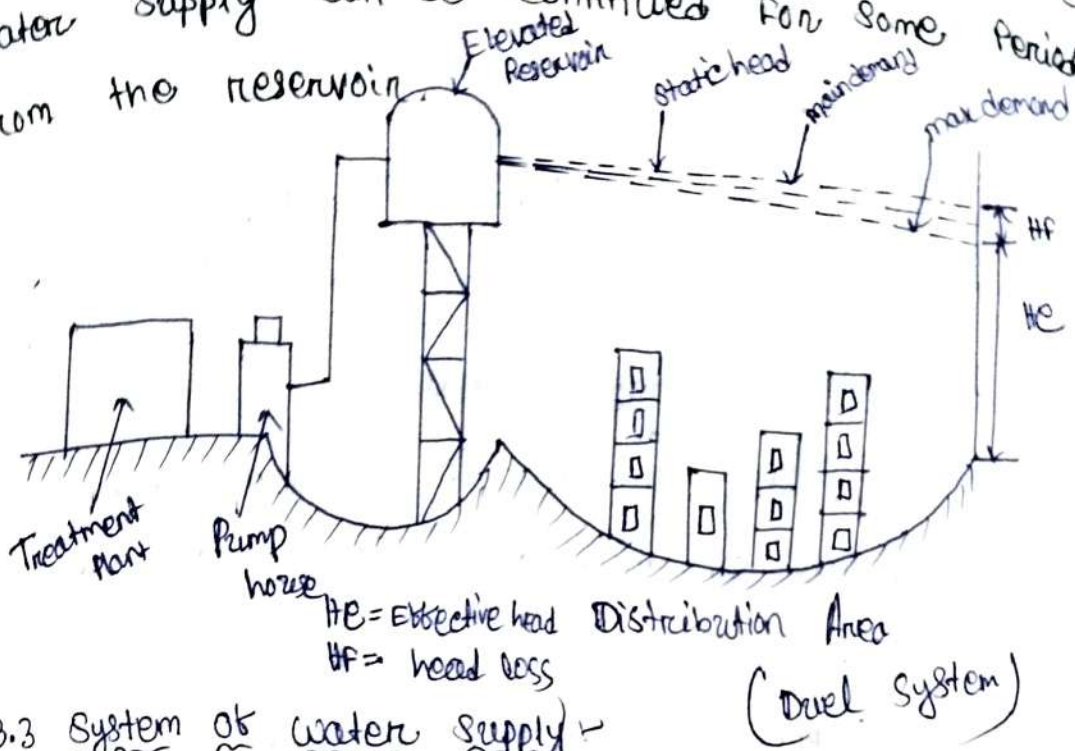 ater supply can be continued for some Period
rom the reservoir
Elevated
Reservoir
static head
main demand
max demand
Hf
He
Treatment
Plant
Pump
house
He = Effective head
Hf = head loss
Distribution Area
(Duel System)
3.3 System of water supply :-